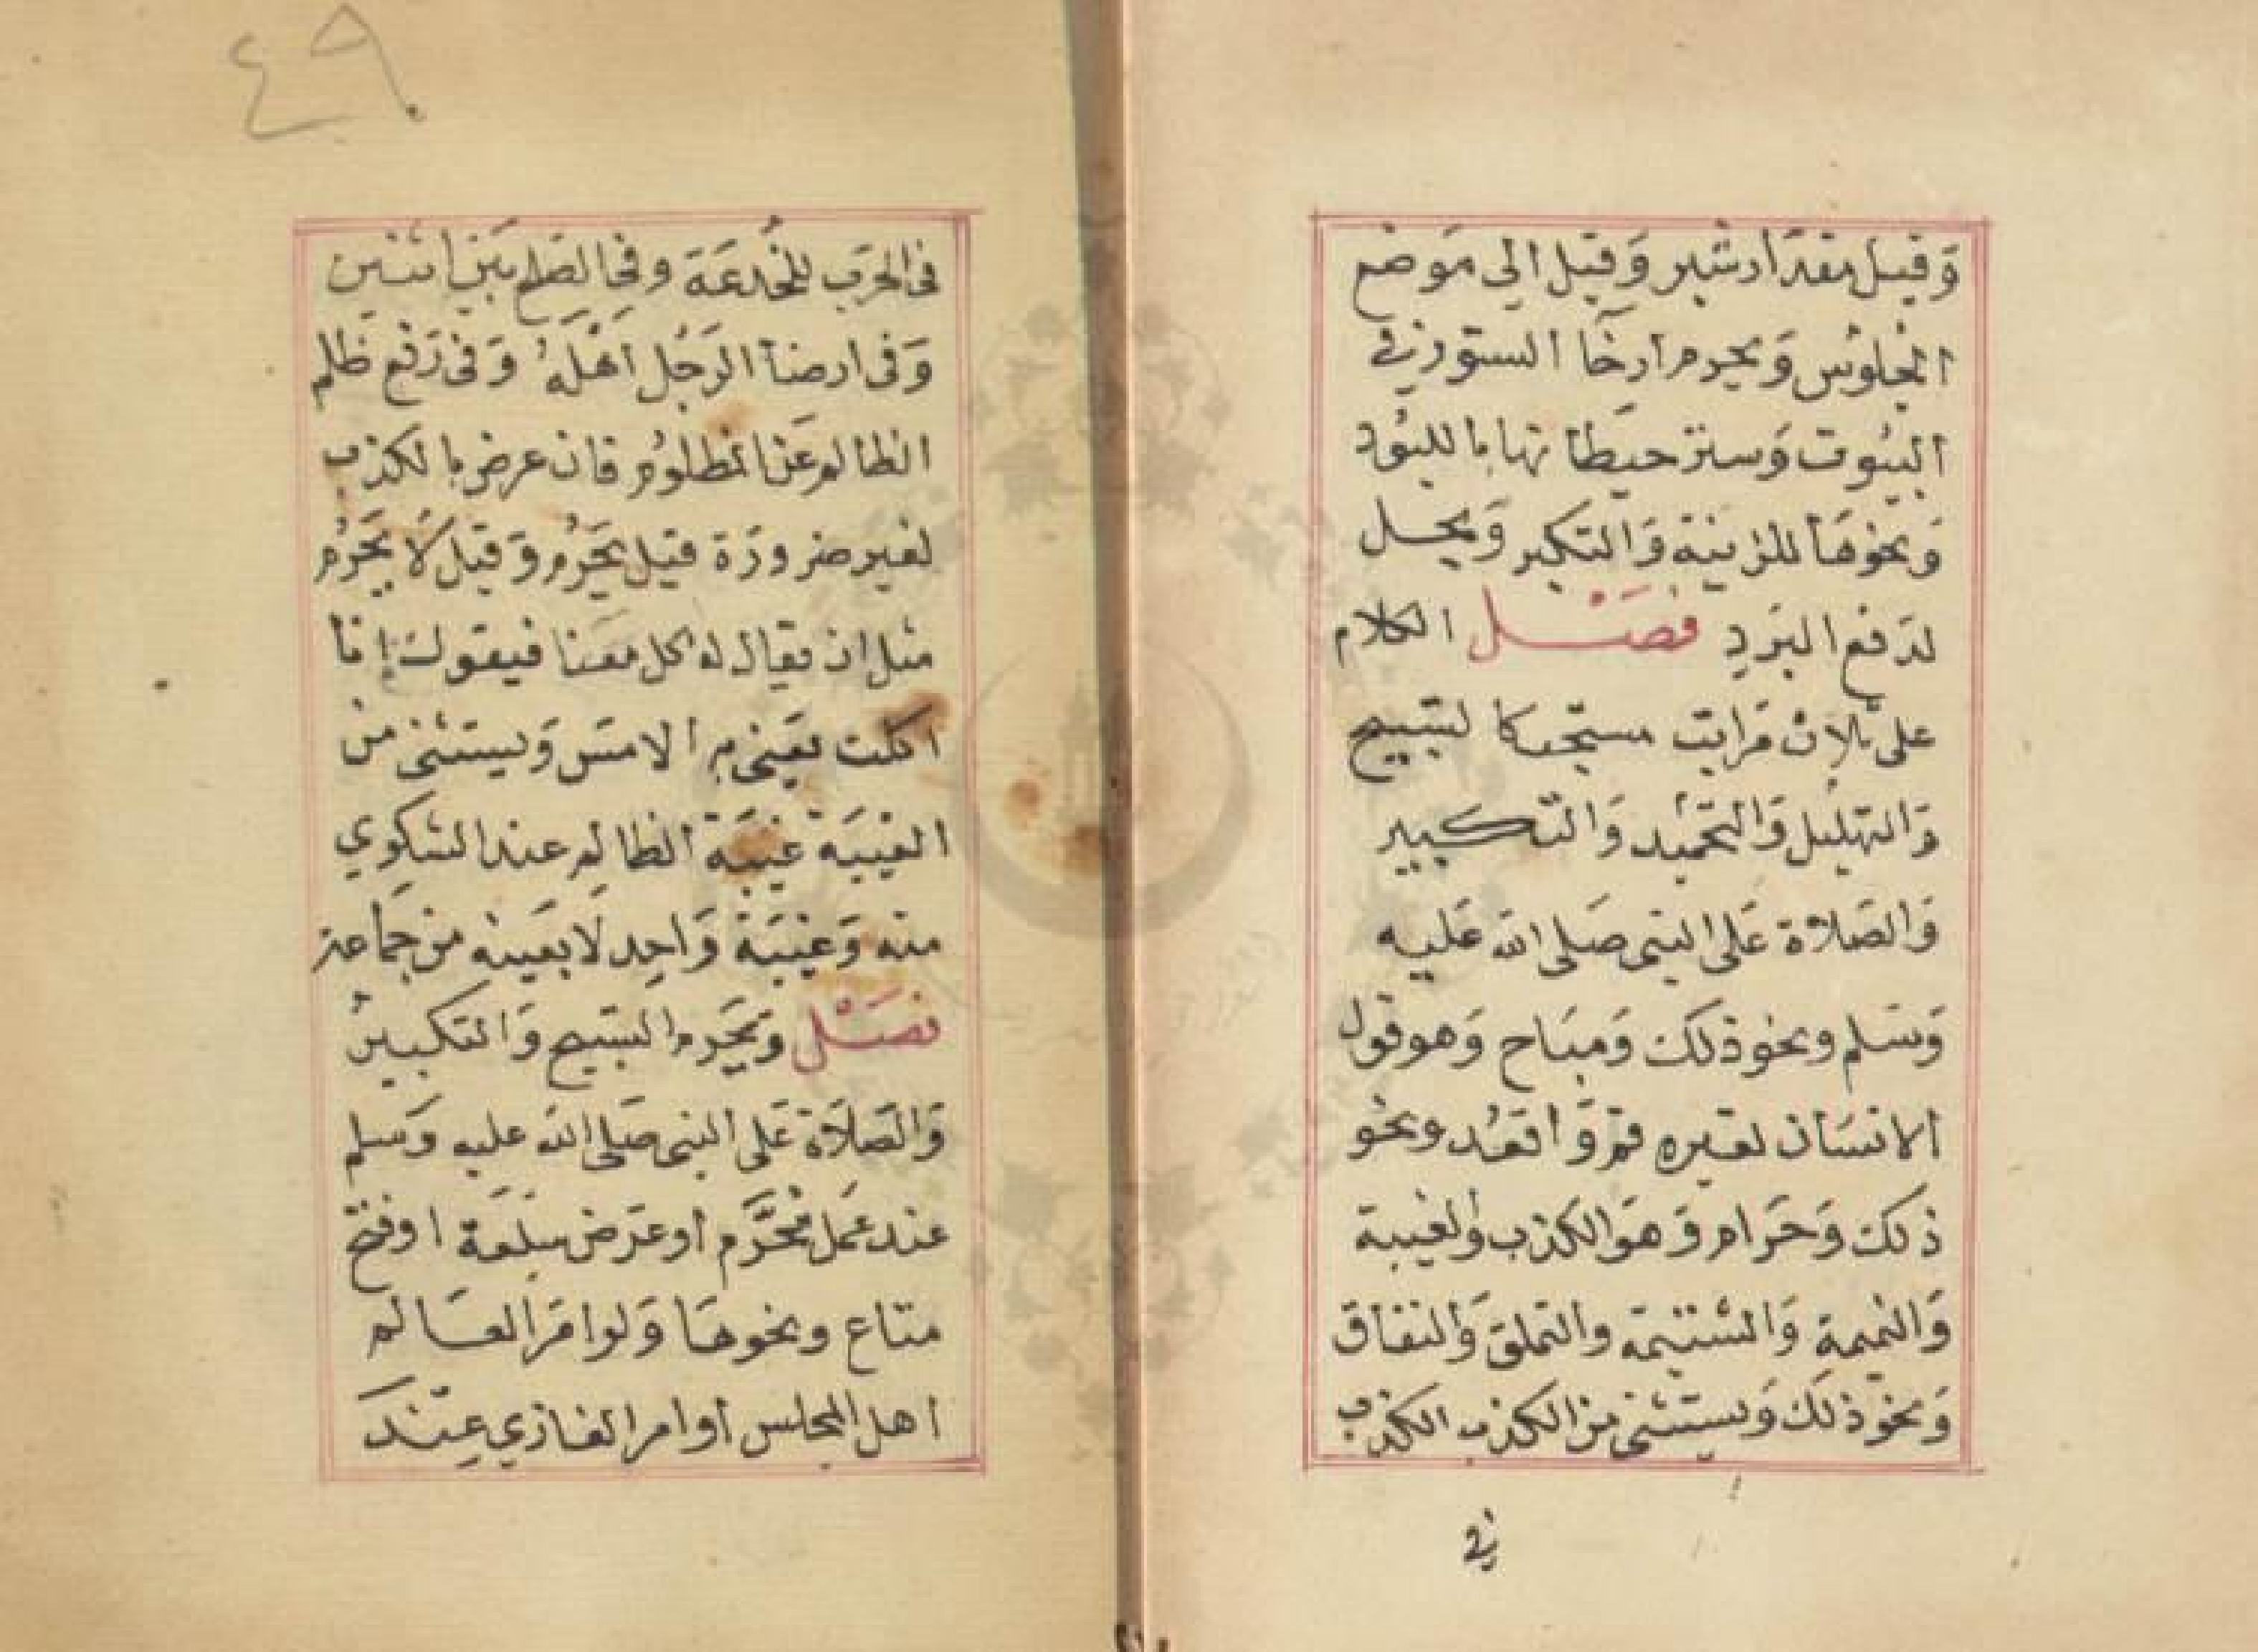 وَقيل مقدَار شبر وَقيل الي مَوضع
الجلوُس وَيحرم ارخَا الستور في
البيُوت وَستر حيَطا نها باللبُود
وَنحوهَا للزينة وَالتكبر وَيحل
لدَفع البَردِ فصَــل الكلام
على ثلاث مَراتب مستحب كا لتسبيح
وَالتهليل وَالتحميد وَالتكبير
وَالصَلاة عَلى النبى صَلى الله عَليه
وَسَلم ونحو ذلك وَمبَاح وَهو قول
الانسَان لغيره قم وَاقعُد ونحو
ذلك وَحَرام وَهوَ الكذب والغيبة
وَالنميمة وَالشتيمة والتملق وَالنفاق
وَنحو ذلك وَيستثنى من الكذب الكذب
في
٤٩
فى الحرَب للخُدعَة وفى الصَلح بَين اثنين
وَفى ارضا الرَجُل اَهْلَهُ وَفى دَفع ظلم
الظالم عَن المظلوُم فان عرض بالكذب
لغير ضرورَة قيل يَحرُم وَقيل لَا يَحرُم
مثل ان يقال له كل معَنا فيقول انا
اكلت يعَنى به الامسَ وَيستثنى من
الغيبَة غيبَة الظالم عند الشكوي
منه وَغيبَة وَاحِد لَا بعَينه من جَماعة
فصَــل وَيَحرم التسَبيح وَالتكبيرُ
وَالصَلَاة عَلى النبى صَلى الله عليه وَسَلم
عند عَمل مُحَرَّم اوعرَض سِلعَة اوفتح
متاع ونحوهَا وَلوامَر العَـالم
اهل المجلس اوامر الغازي عِنـدَ